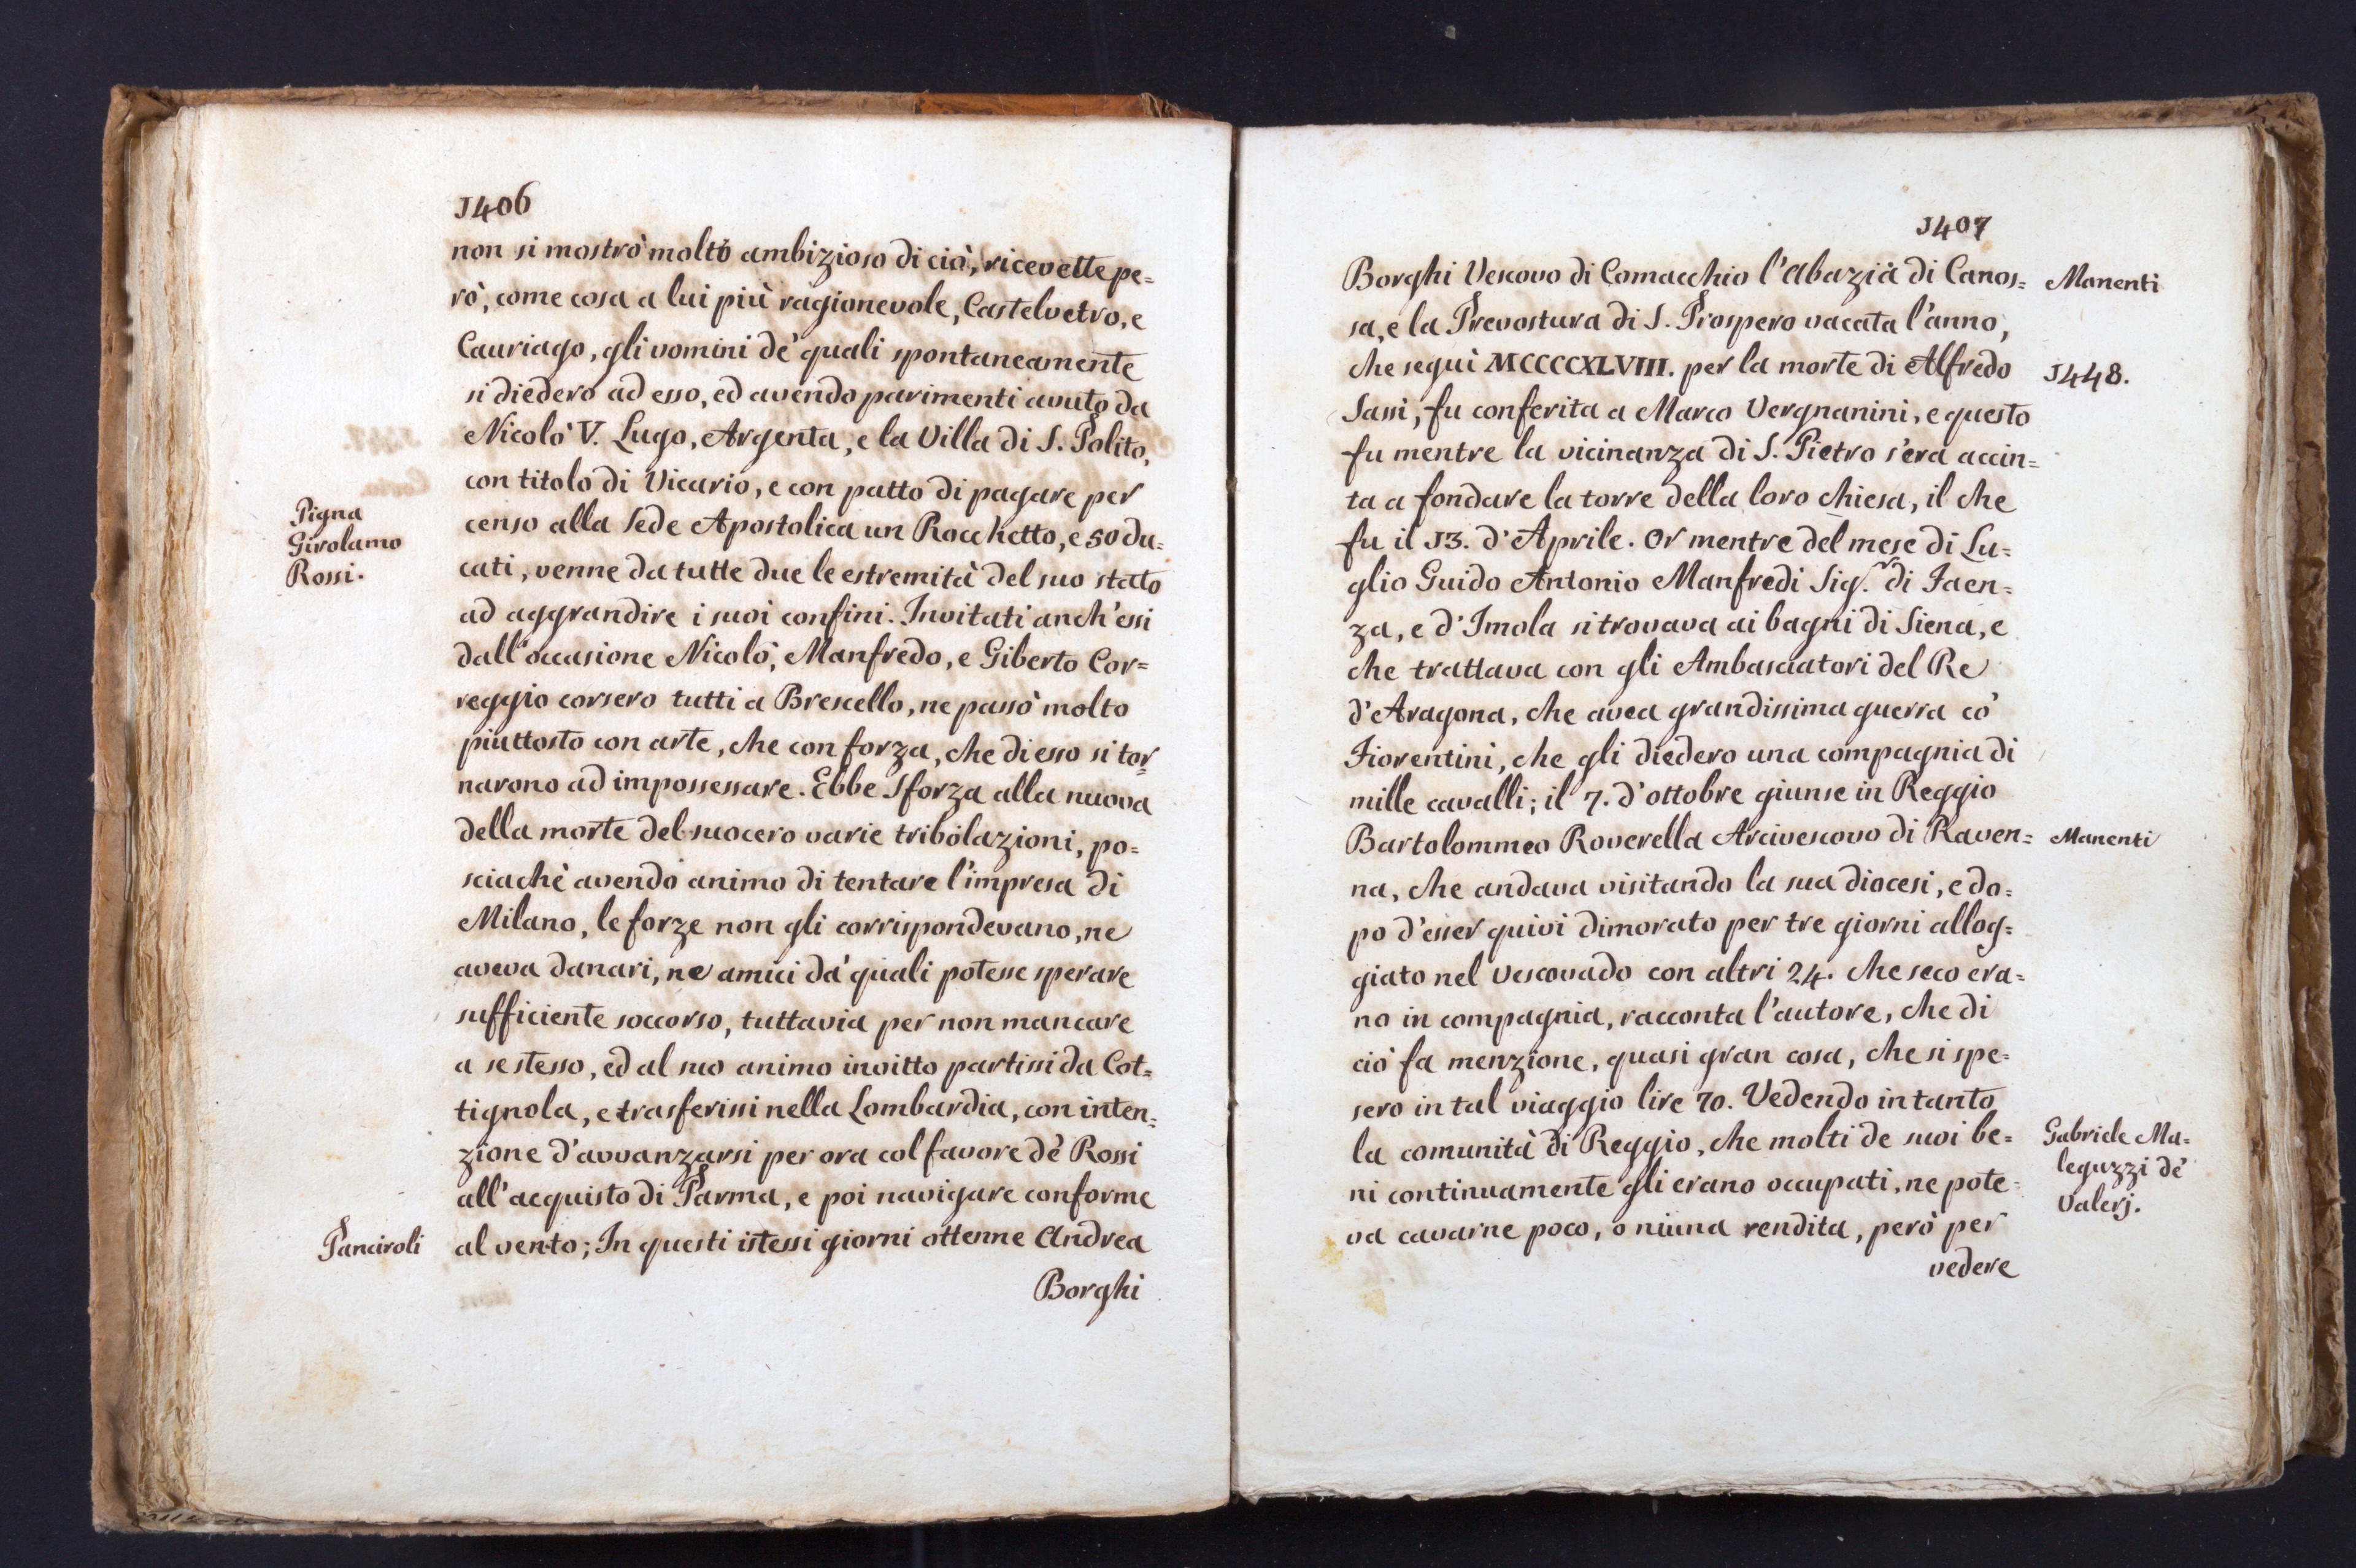 1406
non si mostrò molto ambizioso di ciò, ricevette pe=
rò, come cosa a lui più ragionevole, Castelvetro, e
Cauriago, gli vomini de' quali spontaneamente
si diedero ad esso, ed avendo parimenti avuto da
Nicolò V. Lugo, Argenta, e la Villa di S. Polito,
con titolo di Vicario, e con patto di pagare per
Pigna
Girolamo
Rossi.
censo alla Sede Apostolica un Rocchetto, e 50 du=
cati, venne da tutte due le estremità del suo stato
ad aggrandire i suoi confini. Invitati anch'essi
dall'occasione Nicolò, Manfredo, e Giberto Cor=
reggio corsero tutti a Brescello, ne passò molto
piuttosto con arte, che con forza, che di esso si tor=
narono ad impossessare. Ebbe Sforza alla nuova
della morte del suocero varie tribolazioni, po=
sciachè avendo animo di tentare l'impresa di
Milano, le forze non gli corrispondevano, ne
aveva danari, ne amici da' quali potesse sperare
sufficiente soccorso, tuttavia per non mancare
a se stesso, ed al suo animo invitto partissi da Cot=
tignola, e trasferissi nella Lombardia, con inten=
zione d'avvanzarsi per ora col favore de' Rossi
all'acquisto di Parma, e poi navigare conforme
Panciroli
al vento; In questi istessi giorni ottenne Andrea
Borghi
1407
Borghi Vescovo di Comacchio l'Abazià di Canos=
Manenti
sa, e la Prevostura di S. Prospero vacata l'anno,
che seguì MCCCCXLVIII. per la morte di Alfredo
1448.
Sassi, fu conferita a Marco Vergnanini, e questo
fu mentre la vicinanza di S. Pietro s'era accin=
ta a fondare la torre della loro chiesa, il che
fu il 13. d'Aprile. Or mentre del mese di Lu=
glio Guido Antonio Manfredi Sig.r di Faen=
za, e d'Imola si trovava ai bagni di Siena, e
che trattava con gli Ambasciatori del Re
d'Aragona, che avea grandissima guerra co'
Fiorentini, che gli diedero una compagnia di
mille cavalli; il 7. d'ottobre giunse in Reggio
Bartolommeo Roverella Arcivescovo di Raven=
Manenti
na, che andava visitando la sua diocesi, e do=
po d'esser quivi dimorato per tre giorni allog=
giato nel Vescovado con altri 24. che seco era=
no in compagnia, racconta l'autore, che di
ciò fa menzione, quasi gran cosa, che si spe=
sero in tal viaggio lire 70. Vedendo in tanto
la comunità di Reggio, che molti de suoi be=
Gabriele Ma=
leguzzi de'
Valerj.
ni continuamente gli erano occupati, ne pote=
va cavarne poco, o niuna rendita, però per
vedere